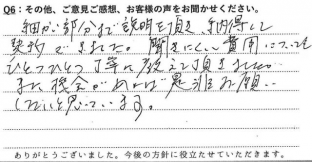 Q6：その他、ご意見ご感想、お客様の声をお聞かせください。
細かい部分まで説明を頂き、納得して
契約できました。聞きにくい費用についても
ひとつひとつ丁寧に教えて頂きました。
また機会があれば是非お願い
したいと思っています。
ありがとうございました。今後の方針に役立たせていただきます。